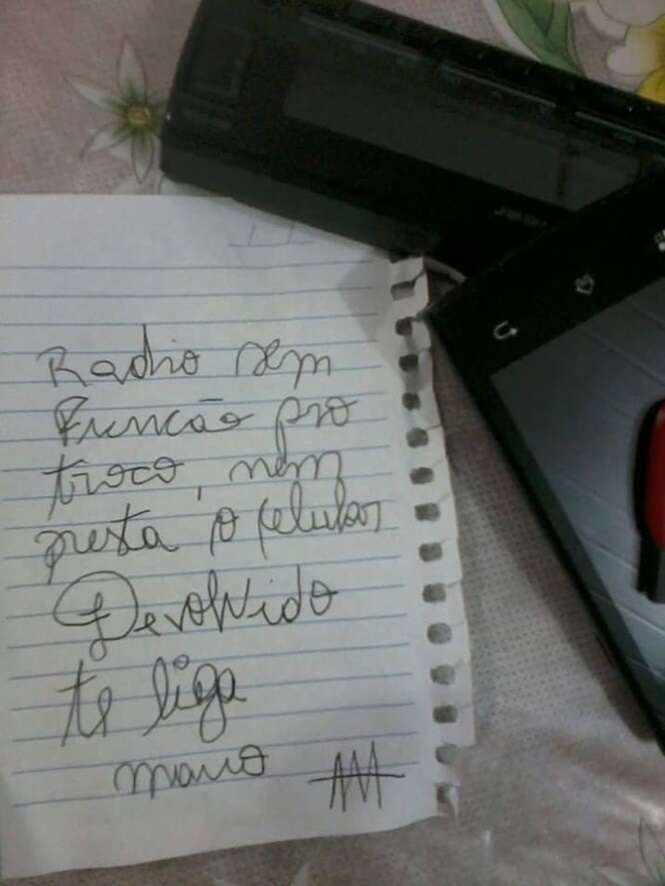 Radio sem
Funcão pro
troco, nem
presta o celular
Devolvido
te liga
mano